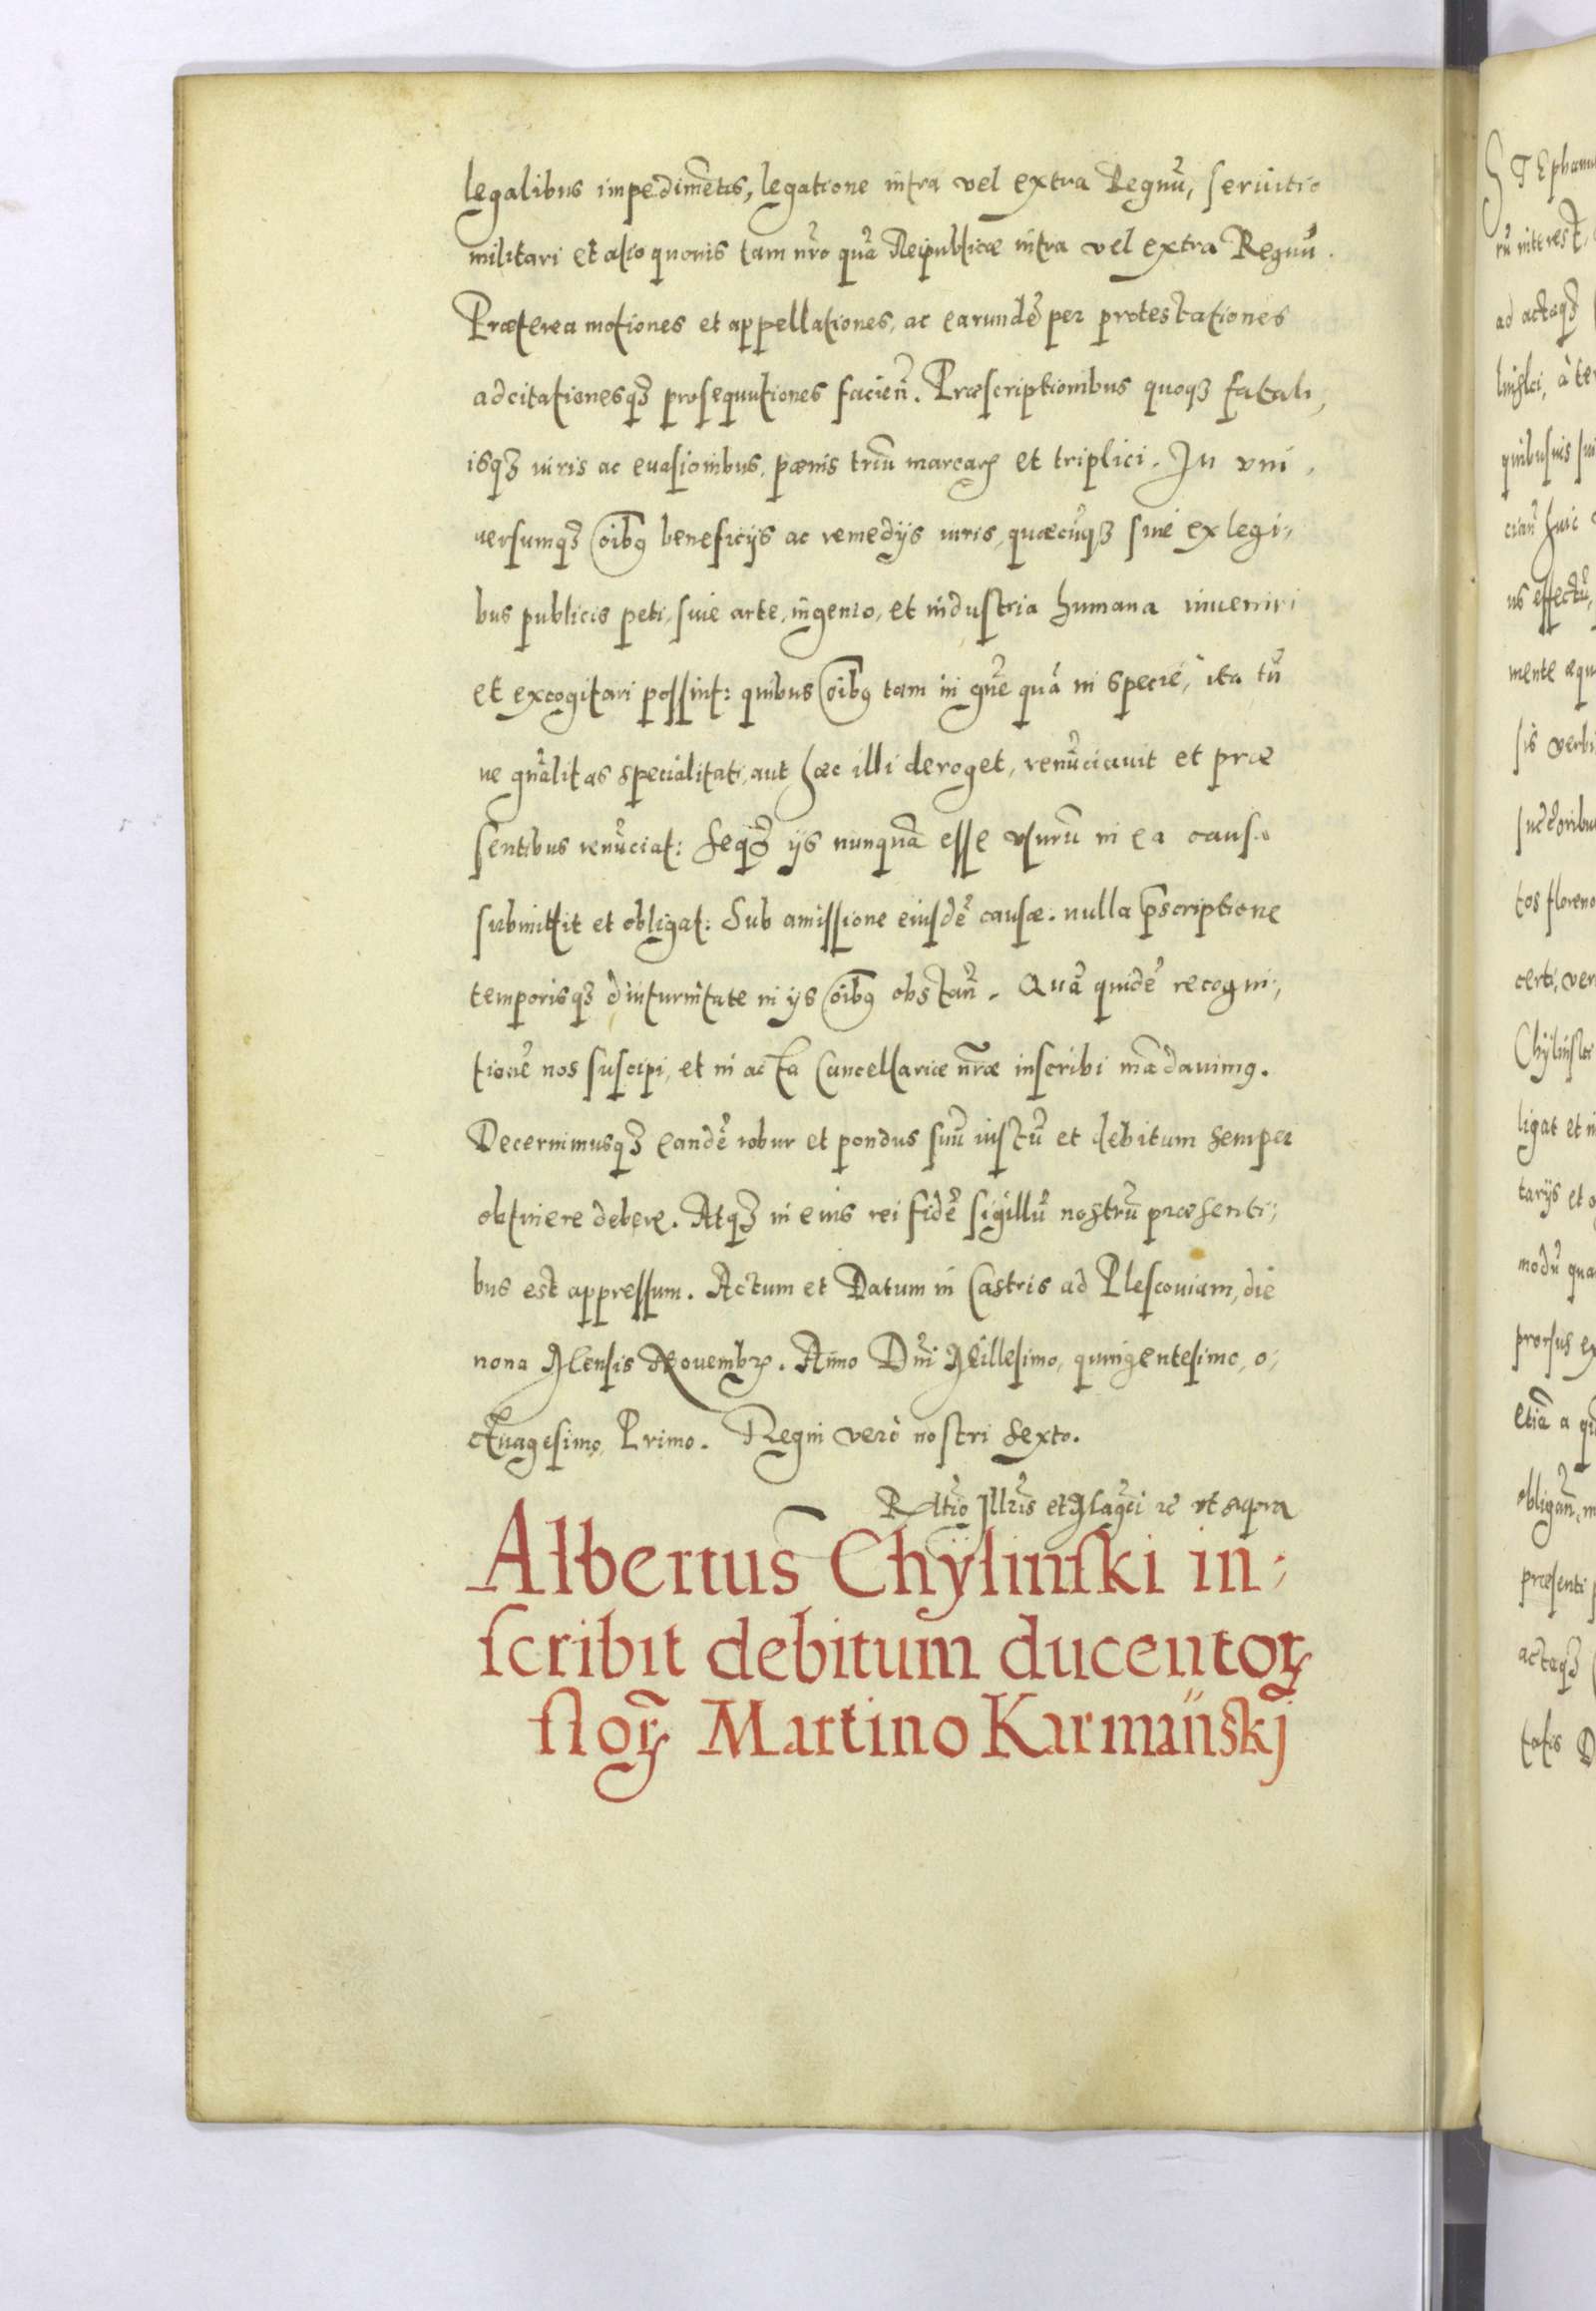 legalibus impedimētis, legatione intra vel extra Regnū, seruitio
militari et alio quouis tam nr̄o quā Reipublicæ intra vel extra Regnū.
Præterea motiones et appellationes, ac earundē per protestationes
adcitationesqꝫ prosequutiones facień. Præscriptionibus quoqꝫ fatali,
isqꝫ iuris ac euasionibus, pœnis triū marcaꝝ et triplici. In vni,
uersumqꝫ oībꝰ beneficijs ac remedijs iuris, quæcūqꝫ siue ex legi,,
bus publicis peti, siue arte, ingenio, et industria humana inueniri
et excogitari possint: quibus oībꝰ tam in gn̄e quā in specie, ita tn̄
ne gn̄alitas specialitati, aut hæc illi deroget, renūciauit et præ
sentibus renūciat: Seqꝫ ijs nunquā esse vsurū in ea causa
submittit et obligat: Sub amissione eiusdē causæ. nulla p̄scriptione
temporisqꝫ diuturnitate in ijs oībꝰ obstań. Quā quidē recogni,,
tionē nos suscipi, et in acta Cancellariæ nr̄æ inscribi mādauimꝰ.
Decernimusqꝫ eandē robur et pondus suū iustū et debitum semper
obtinere debere. Atqꝫ in eius rei fidē sigillū nostrū præsenti,,
bus est appressum. Actum et Datum in Castris ad Plescouiam, die
nona Mensis Nouembꝝ. Anno Dn̄i Millesimo, quingentesimo, o,,
ctuagesimo, Primo. Regni verò nostri Sexto.
Rl̄tio Illr̄is et Mag̃ci ꝛc vt supra
Albertus Chÿlinſki in,,
ſcribit debitum ducentoꝝ
floꝝ Martino Karmańskj